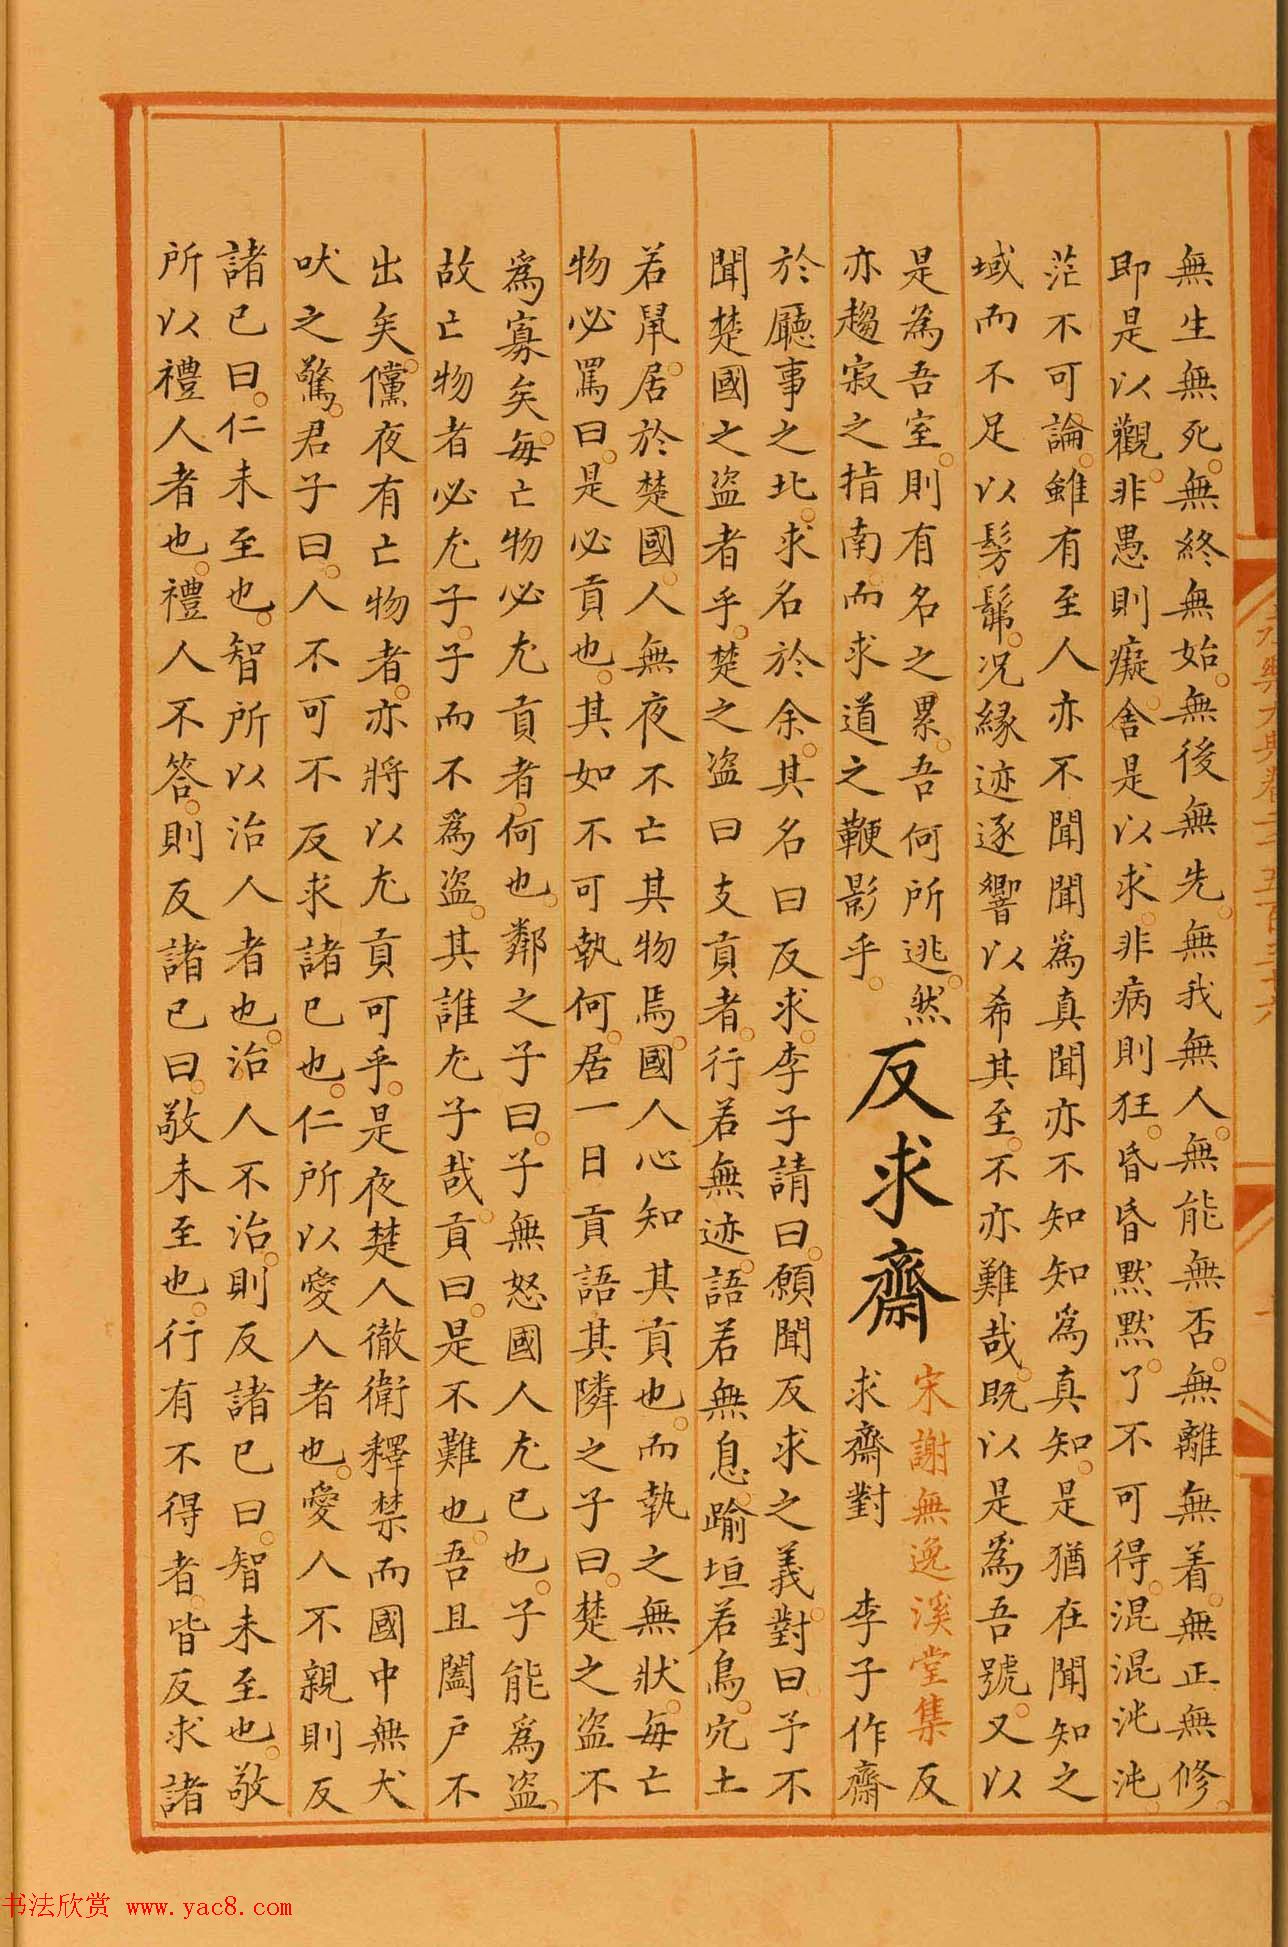 永樂大典卷二千五百三十六
無生無死無終無始無後無先無我無人無能無否無離無着無正無修
即是以觀非愚則癡舍是以求非病則狂昏昏默默了不可得混混沌沌
茫不可論雖有至人亦不聞聞為真聞亦不知知為真知是猶在聞知之
域而不足以髣髴况緣迹逐響以希其至不亦難哉既以是為吾號又以
是為吾室則有名之累吾何所逃然
亦趨寂之指南而求道之鞭影乎
反求齋
宋謝無逸溪堂集反
求齋對 李子作齋
於廳事之北求名於余其名曰反求李子請曰願聞反求之義對曰予不
聞楚國之盜者乎楚之盜曰支貢者行若無迹語若無息踰垣若鳥穴土
若鼠居於楚國人無夜不亡其物焉國人心知其貢也而執之無狀每亡
物必罵曰是必貢也其如不可執何居一日貢語其隣之子曰楚之盜不
為寡矣每亡物必尤貢者何也鄰之子曰子無怒國人尤已也子能為盜
故亡物者必尤子子而不為盜其誰尤子哉貢曰是不難也吾且闔戶不
出矣儻夜有亡物者亦將以尤貢可乎是夜楚人徹衛釋禁而國中無犬
吠之驚君子曰人不可不反求諸已也仁所以愛人者也愛人不親則反
諸已曰仁未至也智所以治人者也治人不治則反諸已曰智未至也敬
所以禮人者也禮人不答則反諸已曰敬未至也行有不得者皆反求諸
书法欣赏 www.yac8.com